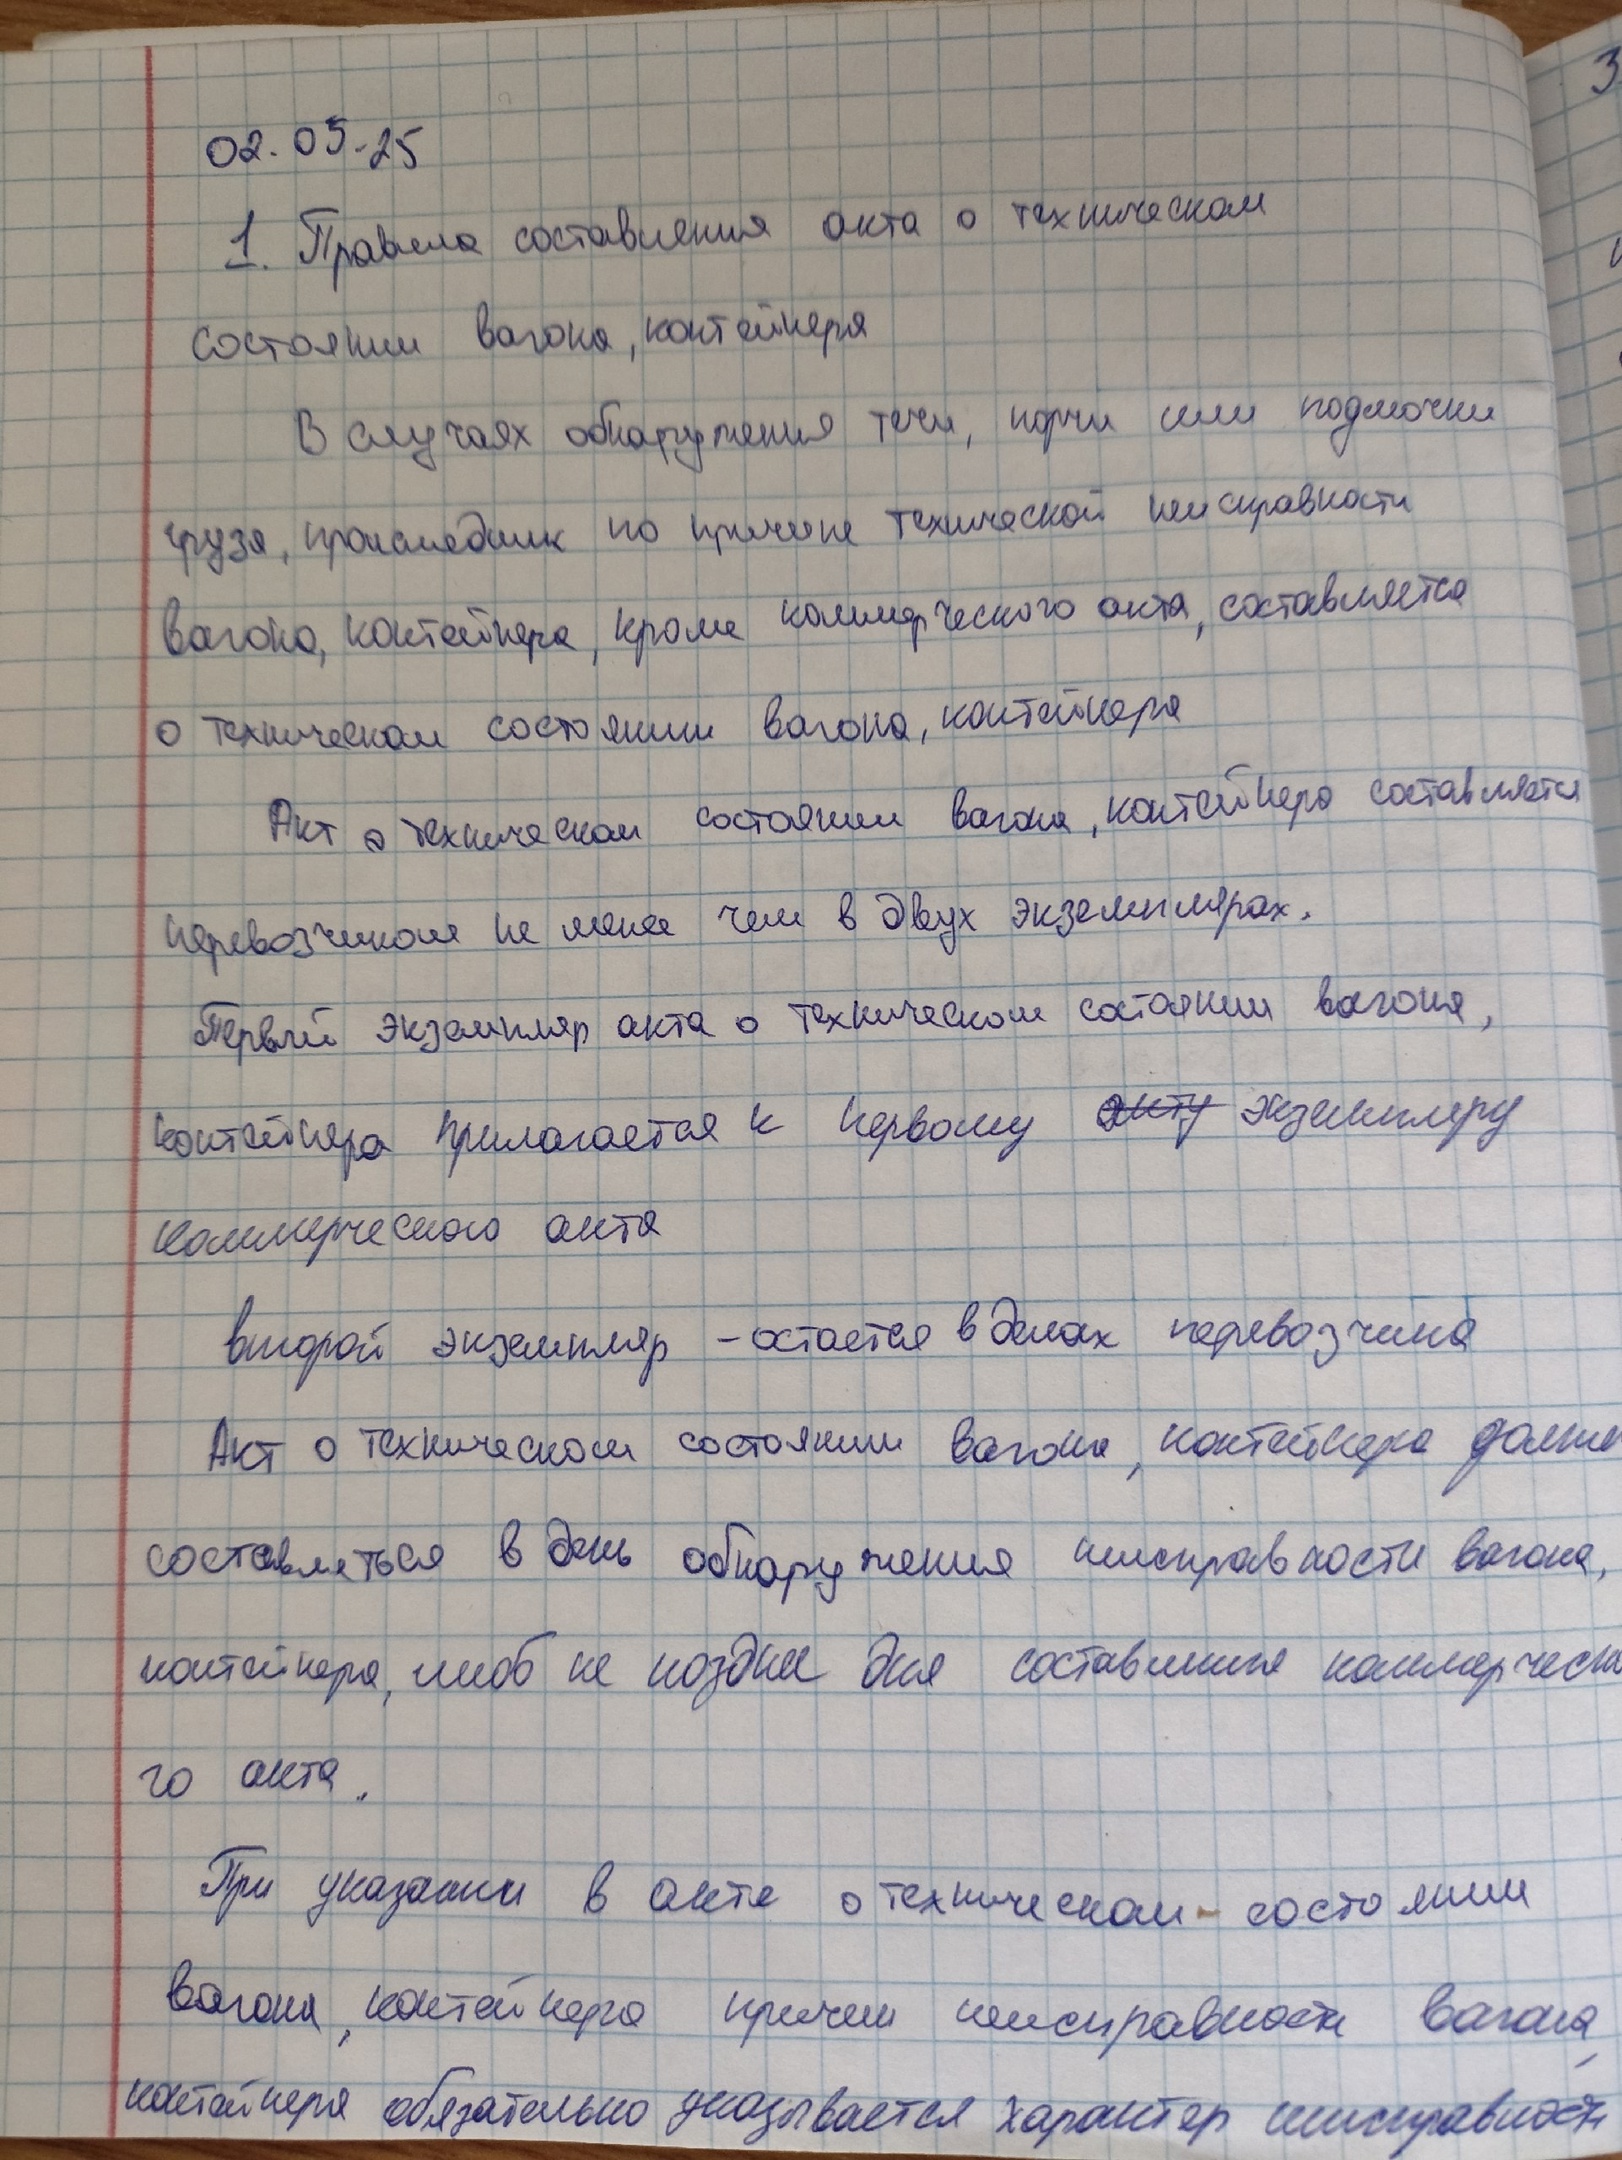 02.05.25
1. Правила составления акта о техническом
состоянии вагона, контейнера
В случаях обнаружения течи, порчи или подмочки
груза, происшедших по причине технической неисправности
вагона, контейнера, кроме коммерческого акта, составляется
о техническом состоянии вагона, контейнера
Акт о техническом состоянии вагона, контейнера составляется
перевозчиком не менее чем в двух экземплярах.
Первый экземпляр акта о техническом состоянии вагона,
контейнера прилагается к первому акту экземпляру
коммерческого акта
второй экземпляр - остается в делах перевозчика
Акт о техническом состоянии вагона, контейнера должен
составляться в день обнаружения неисправности вагона,
контейнера, либо не позднее дня составления коммерческо
го акта.
При указании в акте о техническом состоянии
вагона, контейнера причин неисправности вагона,
контейнера обязательно указывается характер неисправности
3